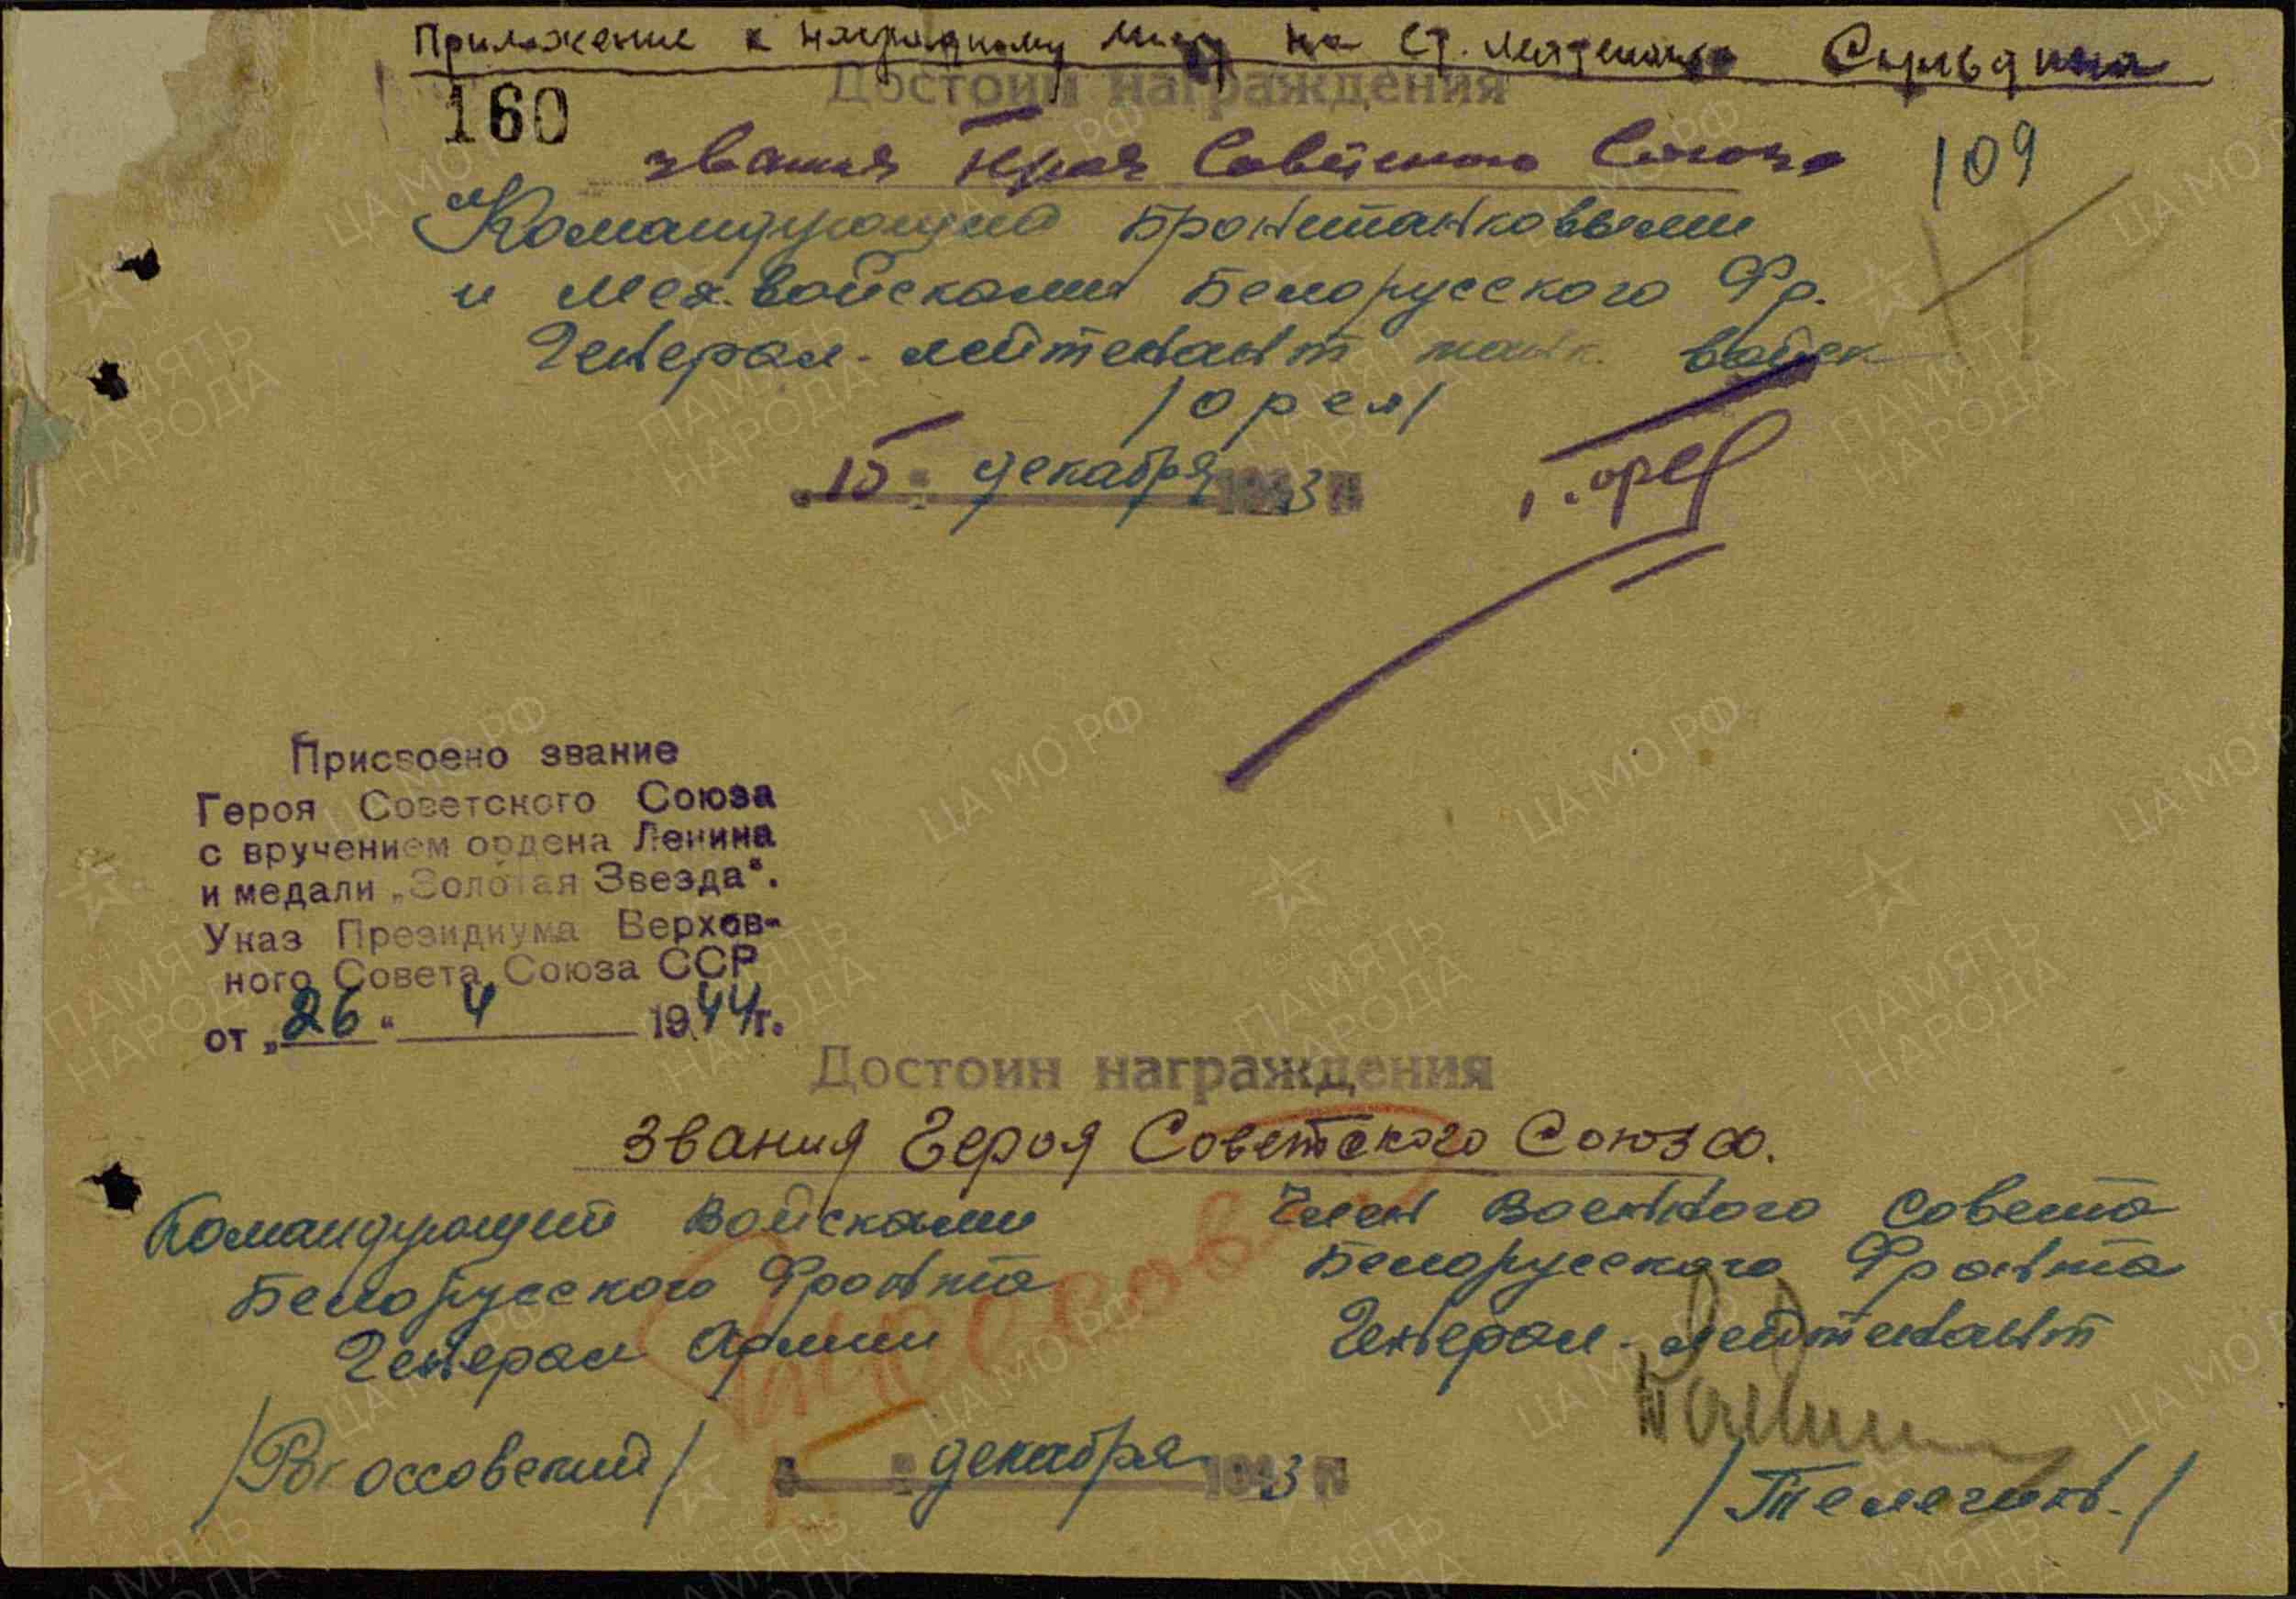 Приложение к наградному листу на ст. лейтенанта
Достоин награждения
160
звания Героя Советского Союза
109
Командующий Бронетанковыми
и мех. войсками Белорусского Фр.
Генерал-лейтенант танк. войск
/Орел/
15 декабря 1943 г.
Г. Орел
Присвоено звание
Героя Советского Союза
с вручением ордена Ленина
и медали „Золотая Звезда“.
Указ Президиума Верхов-
ного Совета Союза ССР
от „26“ 4 1944 г.
Достоин награждения
звания Героя Советского Союза.
Командующий войсками
Белорусского Фронта
Генерал Армии
/Рокоссовский/
декабря 1943 г.
Член Военного Совета
Белорусского Фронта
Генерал-лейтенант
/Телегин./
ЦА МО РФ
ПАМЯТЬ
НАРОДА